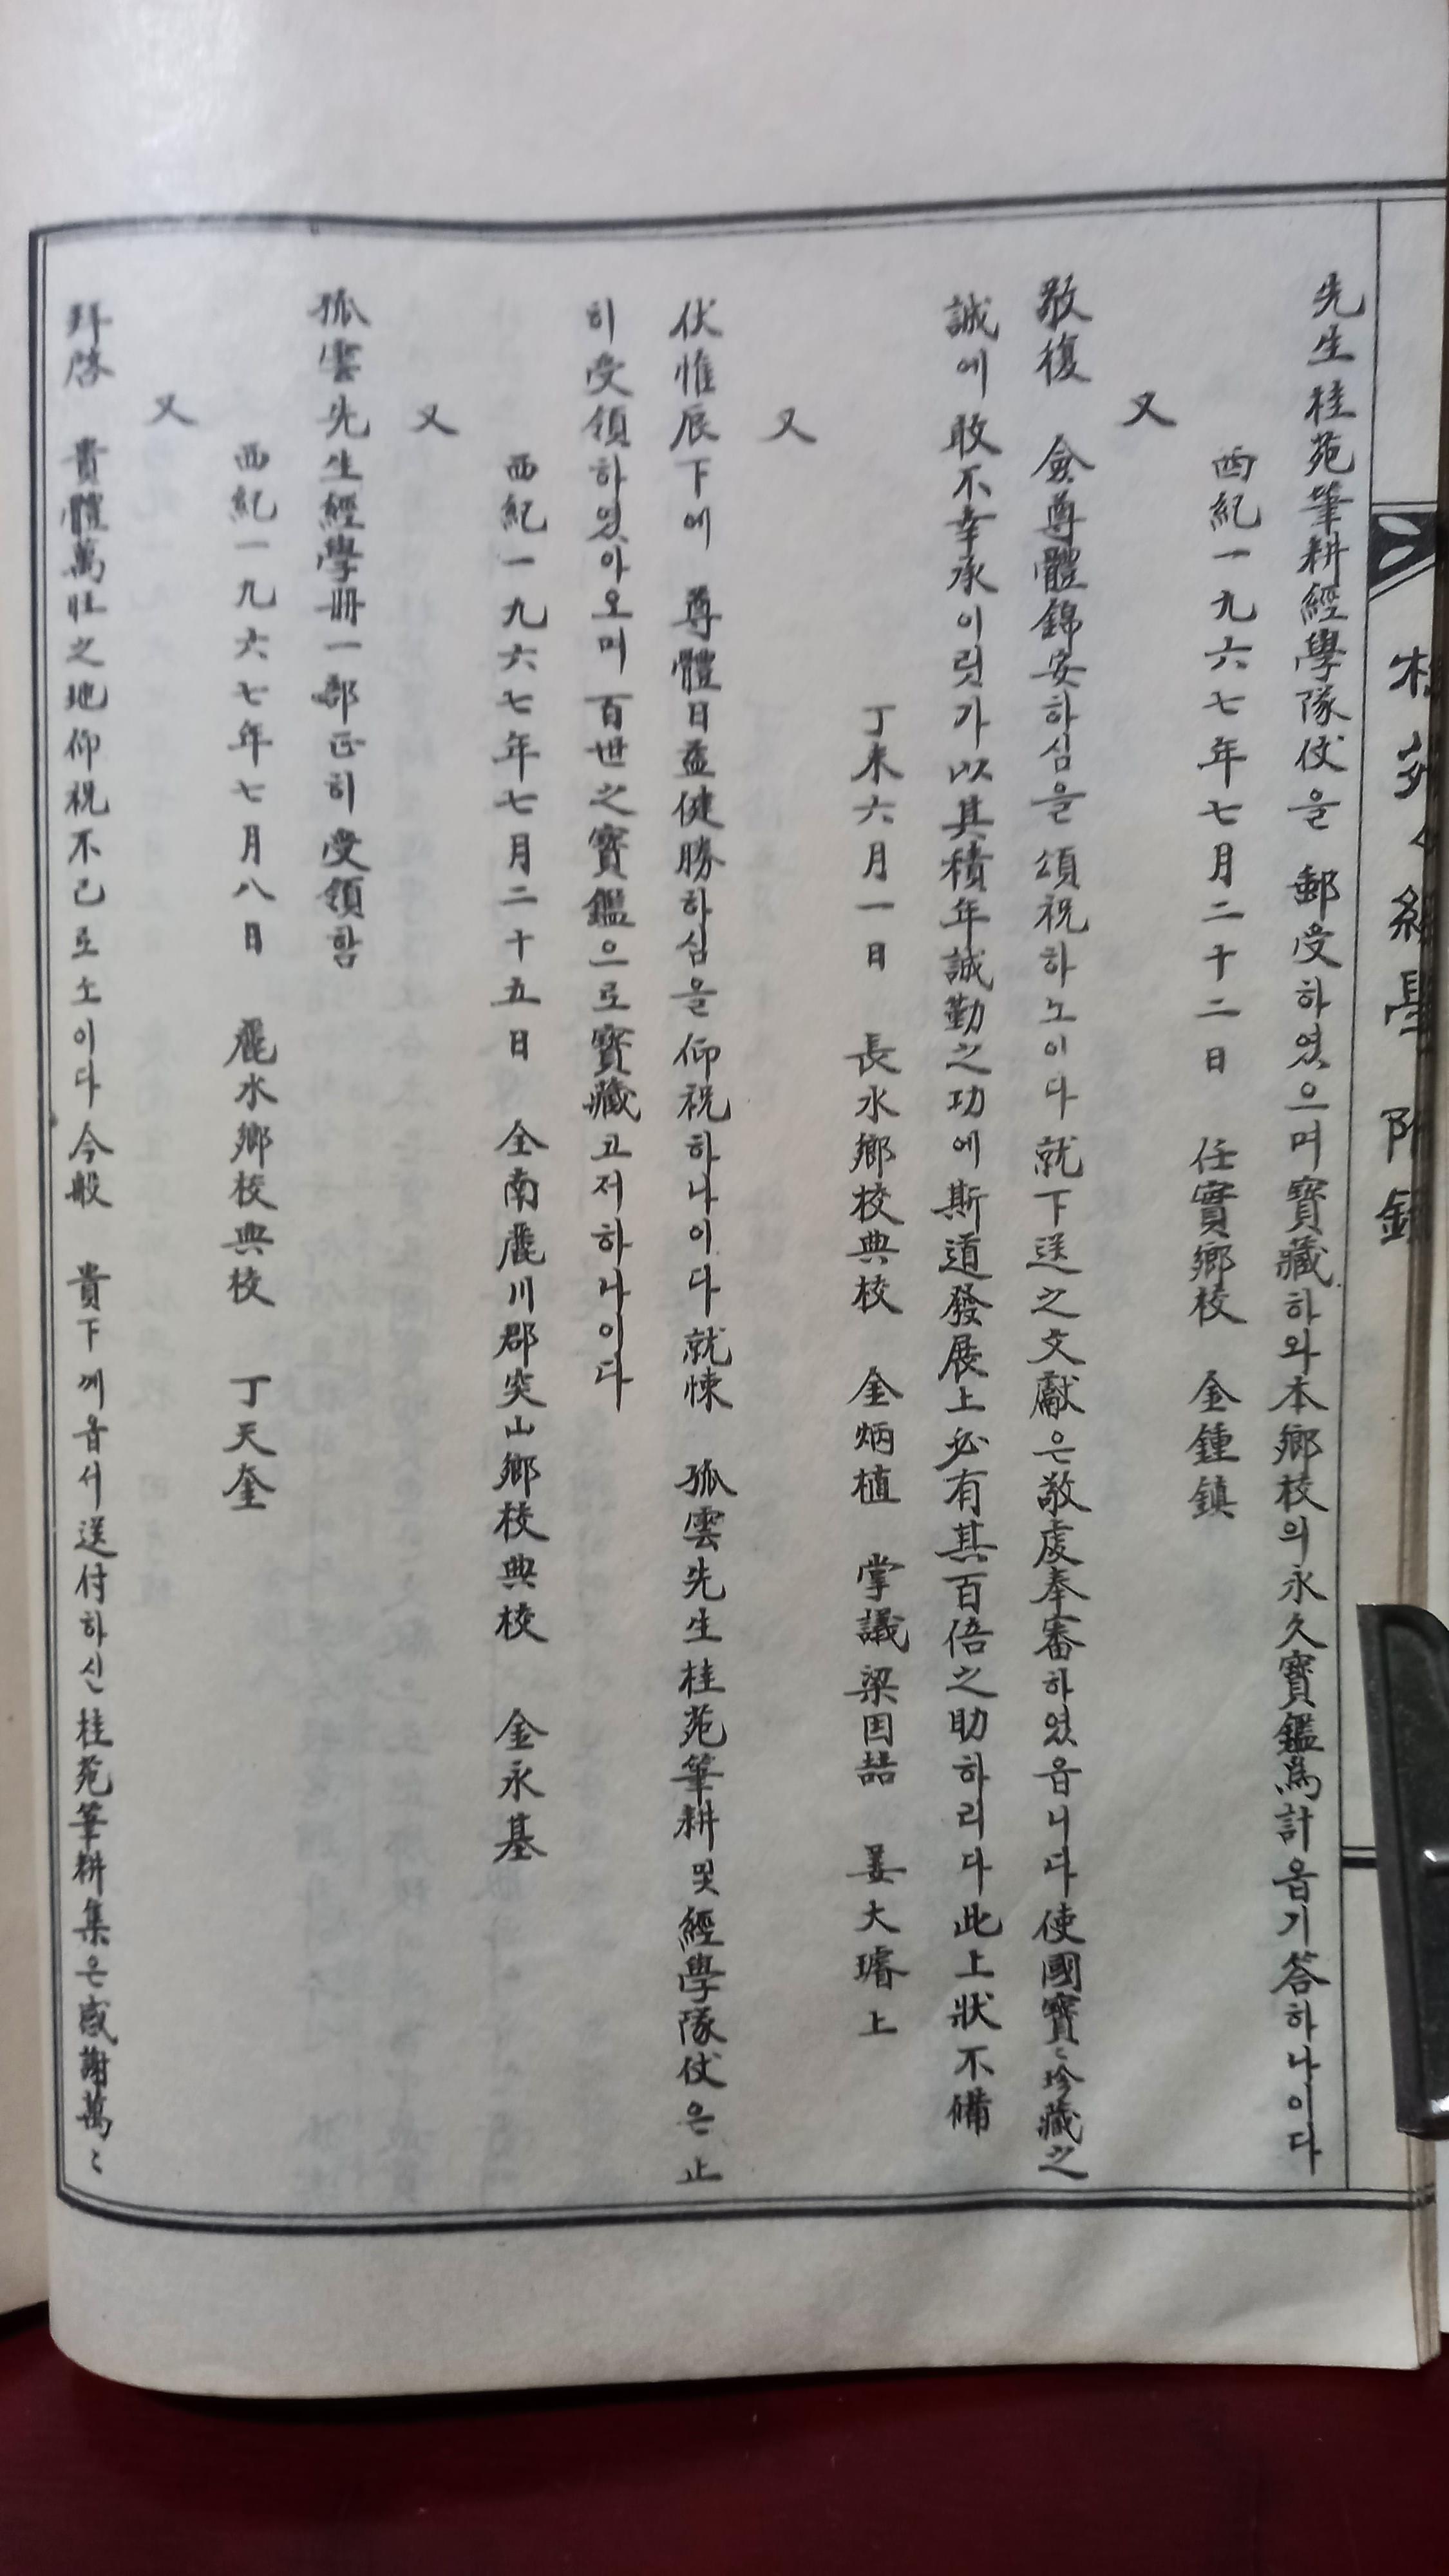 先生桂苑筆耕經學隊仗을 郵受하였으며寶藏하와本鄕校의永久寶鑑爲計옵기答하나이다
西紀一九六七年七月二十二日 任實鄕校 金鍾鎮
又
敬復 僉尊體錦安하심을頌祝하노이다就下送之文獻은敬處奉審하였읍니다使國寶〻珍藏之
誠에敢不幸承이릿가以其積年誠勤之功에斯道發展上必有其百倍之助하리다此上狀不備
丁未六月一日 長水鄕校典校 金炳植 掌議梁因喆 姜大璿上
又
伏惟辰下에 尊體日益健勝하심을仰祝하나이다就悚 孤雲先生桂苑筆耕및經學隊仗은止
히受領하였아오며百世之寶鑑으로寶藏고저하나이다
西紀一九六七年七月二十五日 全南麗川郡突山鄕校典校 金永基
又
孤雲先生經學冊一部正히受領함
西紀一九六七年七月八日 麗水鄕校典校 丁天奎
又
拜啓 貴體萬旺之地仰祝不已로소이다今般 貴下께읍서送付하신桂苑筆耕集은感謝萬〻